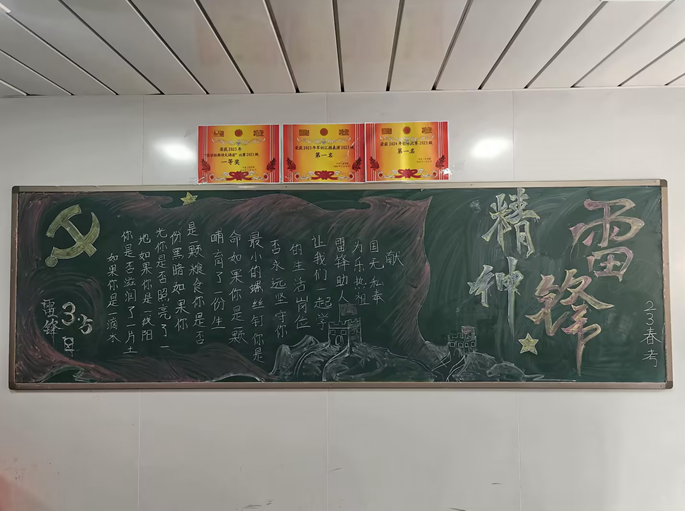 一等奖
第一名
第一名
雷锋
精神
23春考
如果你是一滴水
你是否滋润了一片土
地如果你是一线阳
光你是否照亮了一
份黑暗如果你
是一颗粮食你是否
哺育了一份生
命如果你是一颗
最小的螺丝钉你是
否永远坚守你
的生活岗位
让我们一起学
雷锋助人
为乐热祖
国无私奉
献
雷锋